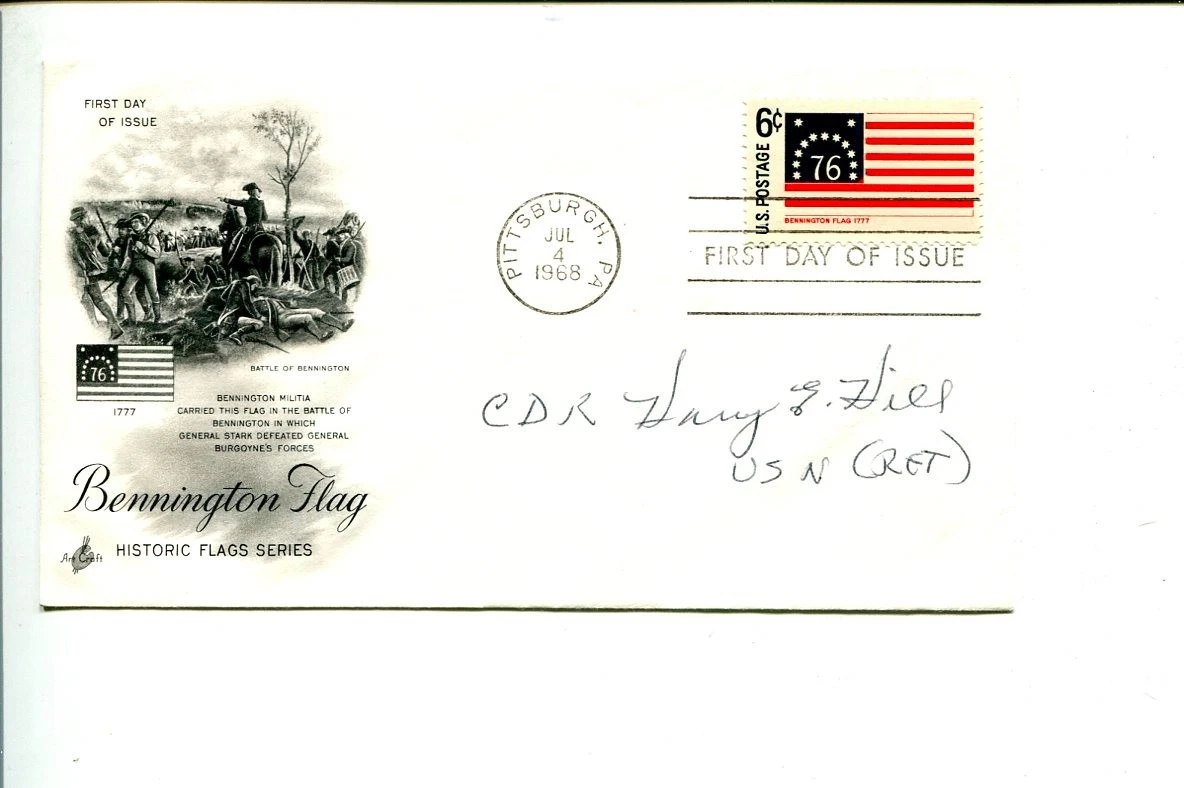 FIRST DAY
OF ISSUE
BATTLE OF BENNINGTON
76
1777
BENNINGTON MILITIA
CARRIED THIS FLAG IN THE BATTLE OF
BENNINGTON IN WHICH
GENERAL STARK DEFEATED GENERAL
BURGOYNE'S FORCES
Bennington Flag
Art Craft
HISTORIC FLAGS SERIES
PITTSBURGH, PA
JUL
4
1968
6¢
U.S. POSTAGE
76
BENNINGTON FLAG 1777
FIRST DAY OF ISSUE
CDR Harry E. Hill
USN (RET)